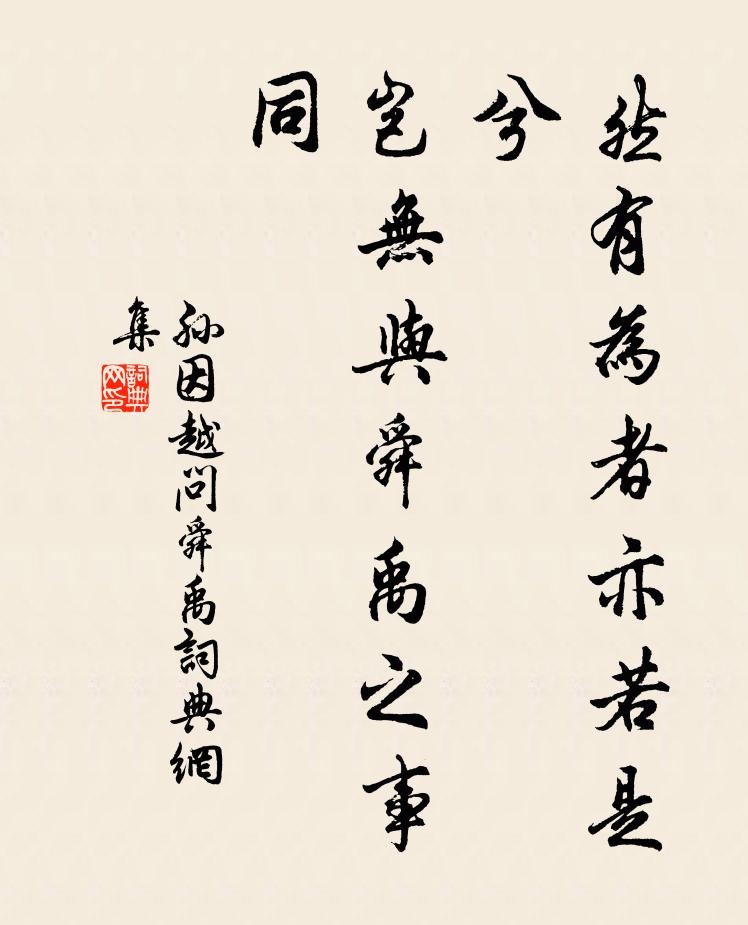 然有為者亦若是
兮
豈無與舜禹之事
同
孫因越問舜禹詞典網
集
詞典
网印